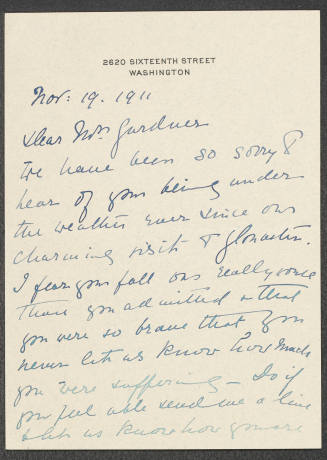 2620 SIXTEENTH STREET
WASHINGTON
Nov: 19. 1911
Dear Mrs Gardner
We have been so sorry to
hear of your being under
the weather ever since our
charming visit to Gloucester.
I fear your fall was really worse
than you admitted & that
you were so brave that you
never let us know how much
you were suffering - Do if
you feel able send me a line
& let us know how you are